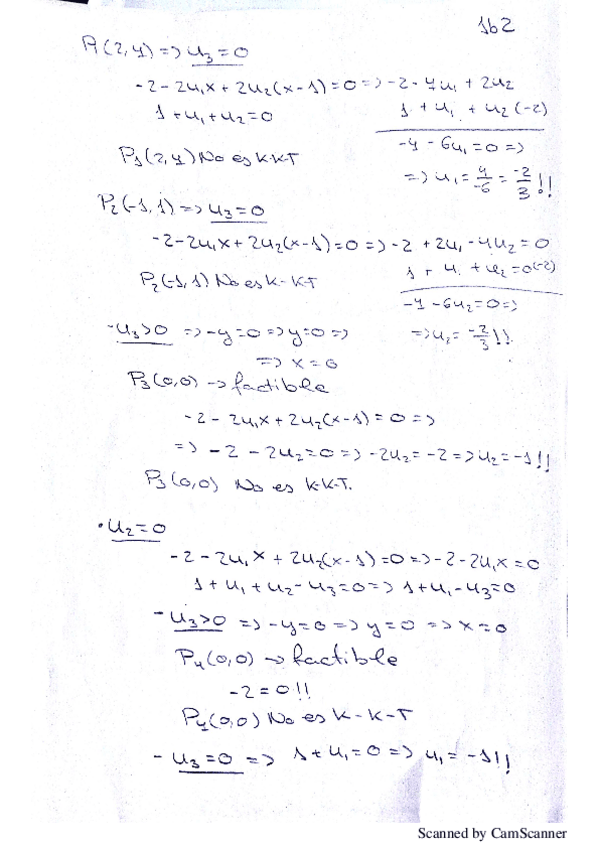 162
P₁(2,4) => u₃ = 0
-2-2u₁x + 2u₂(x-1) = 0 => -2 - 4u₁ + 2u₂
1 + u₁ + u₂ = 0    1 + u₁ + u₂ (-2)
-4 - 6u₁ = 0 =>
P₁(2,4) No es K-K-T
=> u₁ = 4/-6 = -2/3 !!
P₂(-1,1) => u₃ = 0
-2-2u₁x + 2u₂(x-1) = 0 => -2 + 2u₁ - 4u₂ = 0
1 + u₁ + u₂ = 0 (-2)
P₂(-1,1) No es K-K-T
-4 - 6u₂ = 0 =>
- u₃ > 0 => -y = 0 => y = 0 =>    => u₂ = -2/3 !!
=> x = 0
P₃(0,0) -> factible
-2-2u₁x + 2u₂(x-1) = 0 =>
=> -2 - 2u₂ = 0 => -2u₂ = -2 => u₂ = -1 !!
P₃(0,0) No es K-K-T.
• u₂ = 0
-2-2u₁x + 2u₂(x-1) = 0 => -2-2u₁x = 0
1 + u₁ + u₂ - u₃ = 0 => 1 + u₁ - u₃ = 0
- u₃ > 0 => -y = 0 => y = 0 => x = 0
P₄(0,0) -> factible
-2 = 0 !!
P₄(0,0) No es K-K-T
- u₃ = 0 => 1 + u₁ = 0 => u₁ = -1 !!
Scanned by CamScanner